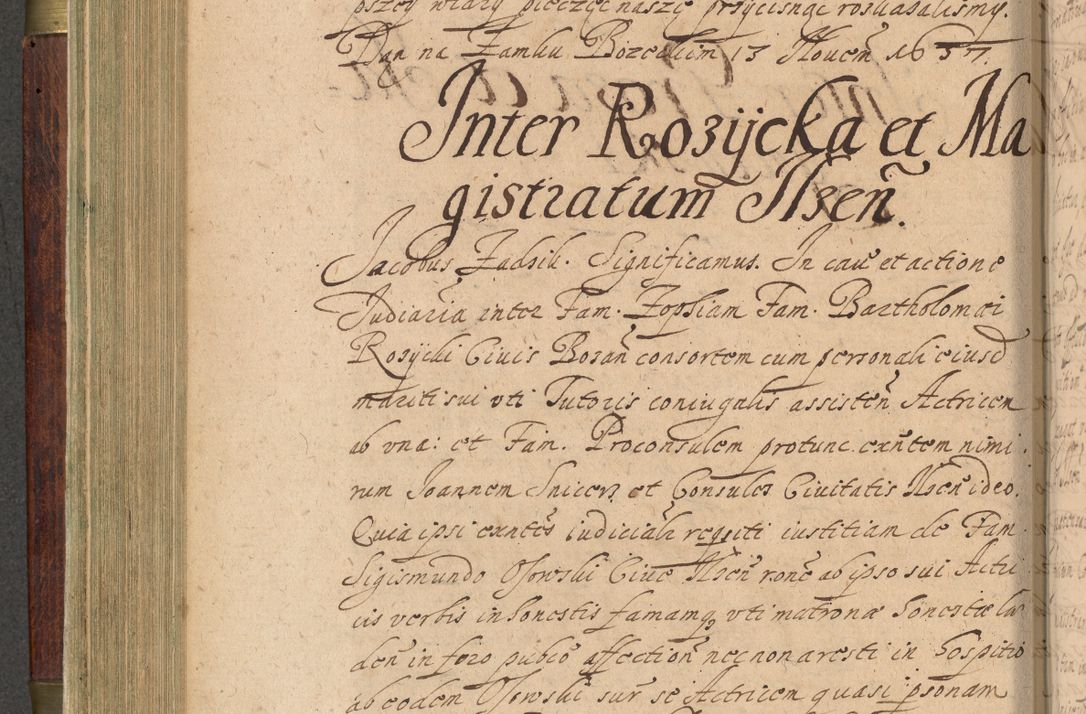 pszey wiary pieczęć naszę przycisnąc roskazalismy.
Dan na Zamku Bozeckim 13 Novem̃ 1637.
Inter Rozÿcka et Ma
gistratum Ilzeñ.
Jacobus Zadzik. Significamus. In cau͠ et actione
Iudiaria inter Fam. Zophiam Fam. Bartholomæi
Rozycki Ciuis Bozañ consortem cum personali eiusd
mariti sui vti Tutoris coniugalis assisteñ Actricem
ab vna: et Fam. Proconsulem protunc exñtem nimi
rum Joannem Snicerz et Consules Ciuitatis Ilzeñ ideo.
Quia ipsi exñtes iudicialr reqsiti iustitiam de Fam
Sigismundo Osowski Ciue Ilzeñ rone ab ipso sui Actri
cis verbis inhonestis famamqȝ vti matronæ honestæ læ
deñ in foro pubco affectioñ necnon aresti in hospitio
ab eodem Osowski sur se Actricem quasi psonam